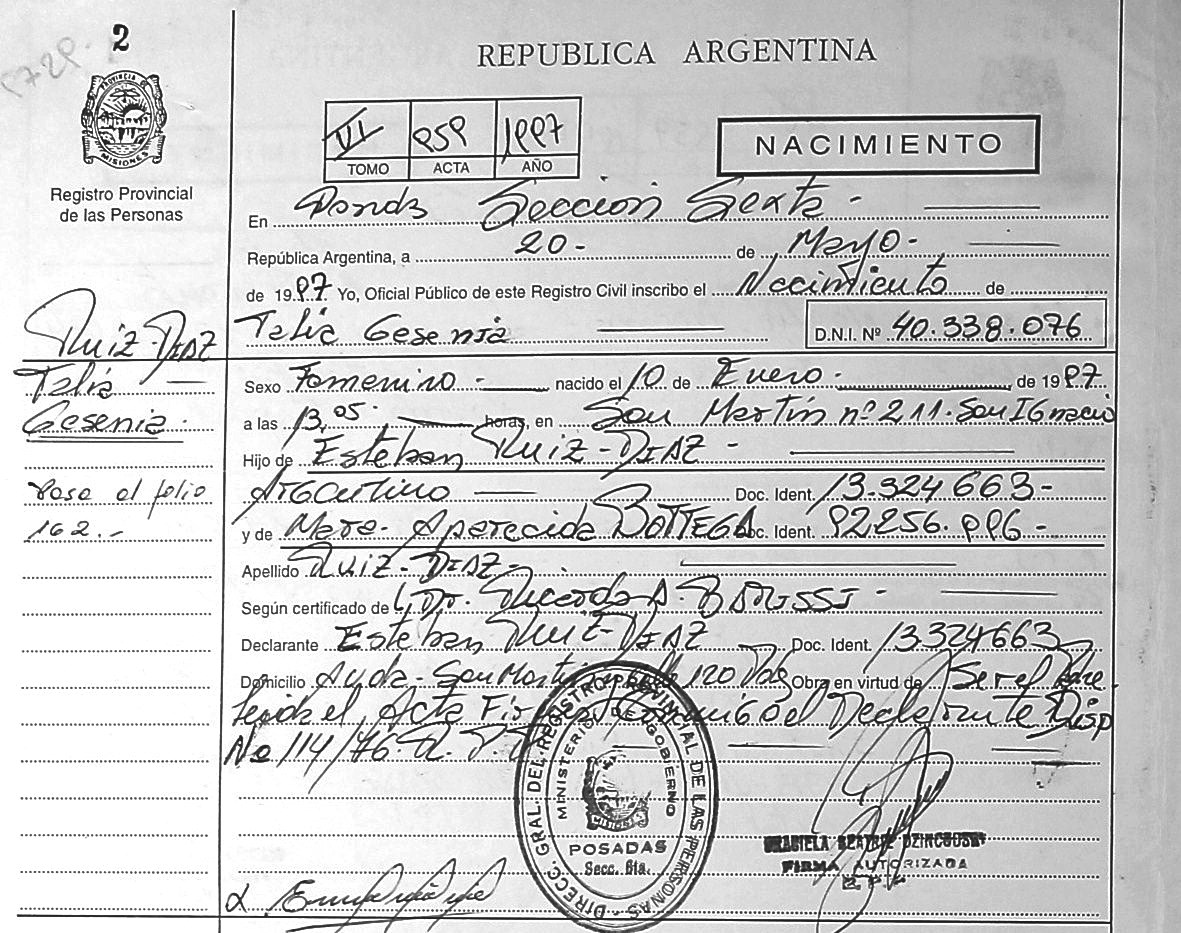 2
REPUBLICA ARGENTINA
PROVINCIA DE
MISIONES
VI 959 1997
TOMO ACTA AÑO
NACIMIENTO
Registro Provincial
de las Personas
En Posadas Sección Sexta -
República Argentina, a 20- de Mayo-
de 1997 Yo, Oficial Público de este Registro Civil inscribo el Nacimiento de
Talia Gesenia D.N.I. Nº 40.338.076
Ruiz-DIAZ
Talia
Gesenia.
Pasa al folio
162.-
Sexo Femenino - nacido el 10 de Enero- de 1997
a las 13,05- horas, en San Martín nº 211. San IGnacio
Hijo de Esteban Ruiz-DIAZ -
Argentino Doc. Ident. 13.324 663-
y de Mara- Aparecida BOTTEGA Doc. Ident. 92.256.996-
Apellido RUIZ-DIAZ-
Según certificado de Dr. Ricardo A. BARISSI -
Declarante Esteban Ruiz-DIAZ Doc. Ident. 13.324663
Domicilio Avda- San Martín calle 120 Pdas Obra en virtud de Ser el Padre
Leida el Acta el Declarante Disp
No 114/76-
DIRECC. GRAL. DEL REGISTRO PROVINCIAL DE LAS PERSONAS
MINISTERIO DE GOBIERNO
MISIONES
POSADAS
Secc. 6ta.
GRACIELA BEATRIZ
FIRMA AUTORIZADA